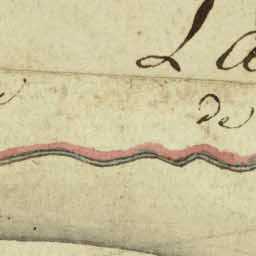 La
de